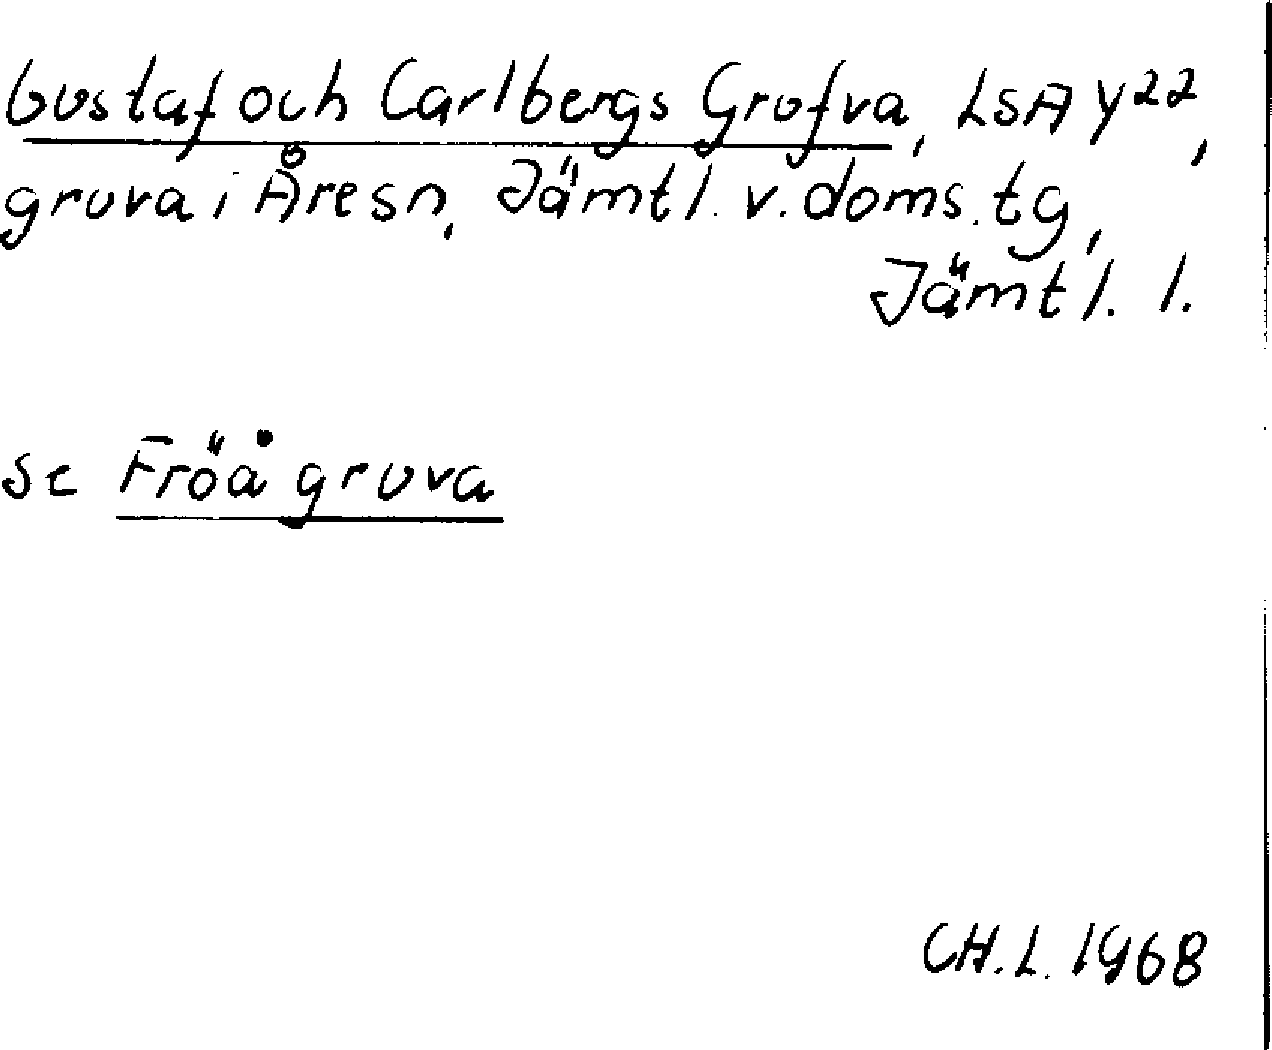 Gustaf och Carlbergs Grufva, LSA Y22,
gruva i Åre sn, Jämtl. v. doms. tg,
Jämtl. l.
se Fröå gruva
CH.L. 1968